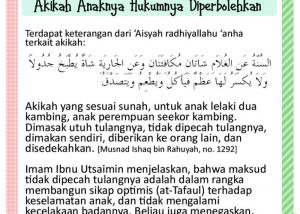 Akikah Anaknya Hukumnya Diperbolehkan
Terdapat keterangan dari 'Aisyah radhiyallahu 'anha
terkait akikah:
السُّنَّةُ عَنِ الْغُلَامِ شَاتَانِ مُكَافَئَتَانِ وَعَنِ الْجَارِيَةِ شَاةٌ يُطْبَخُ جُدُولًا
وَلَا يُكْسَرُ لَهَا عَظْمٌ فَيَأْكُلُ وَيُطْعِمُ وَيَتَصَدَّقُ
Akikah yang sesuai sunah, untuk anak lelaki dua
kambing, anak perempuan seekor kambing.
Dimasak utuh tulangnya, tidak dipecah tulangnya,
dimakan sendiri, diberikan ke orang lain, dan
disedekahkan. [Musnad Ishaq bin Rahuyah, no. 1292]
Imam Ibnu Utsaimin menjelaskan, bahwa maksud
tidak dipecah tulangnya adalah dalam rangka
membangun sikap optimis (at-Tafaul) terhadap
keselamatan anak, dan tidak mengalami
kecelakaan badannya. Beliau juga menegaskan,